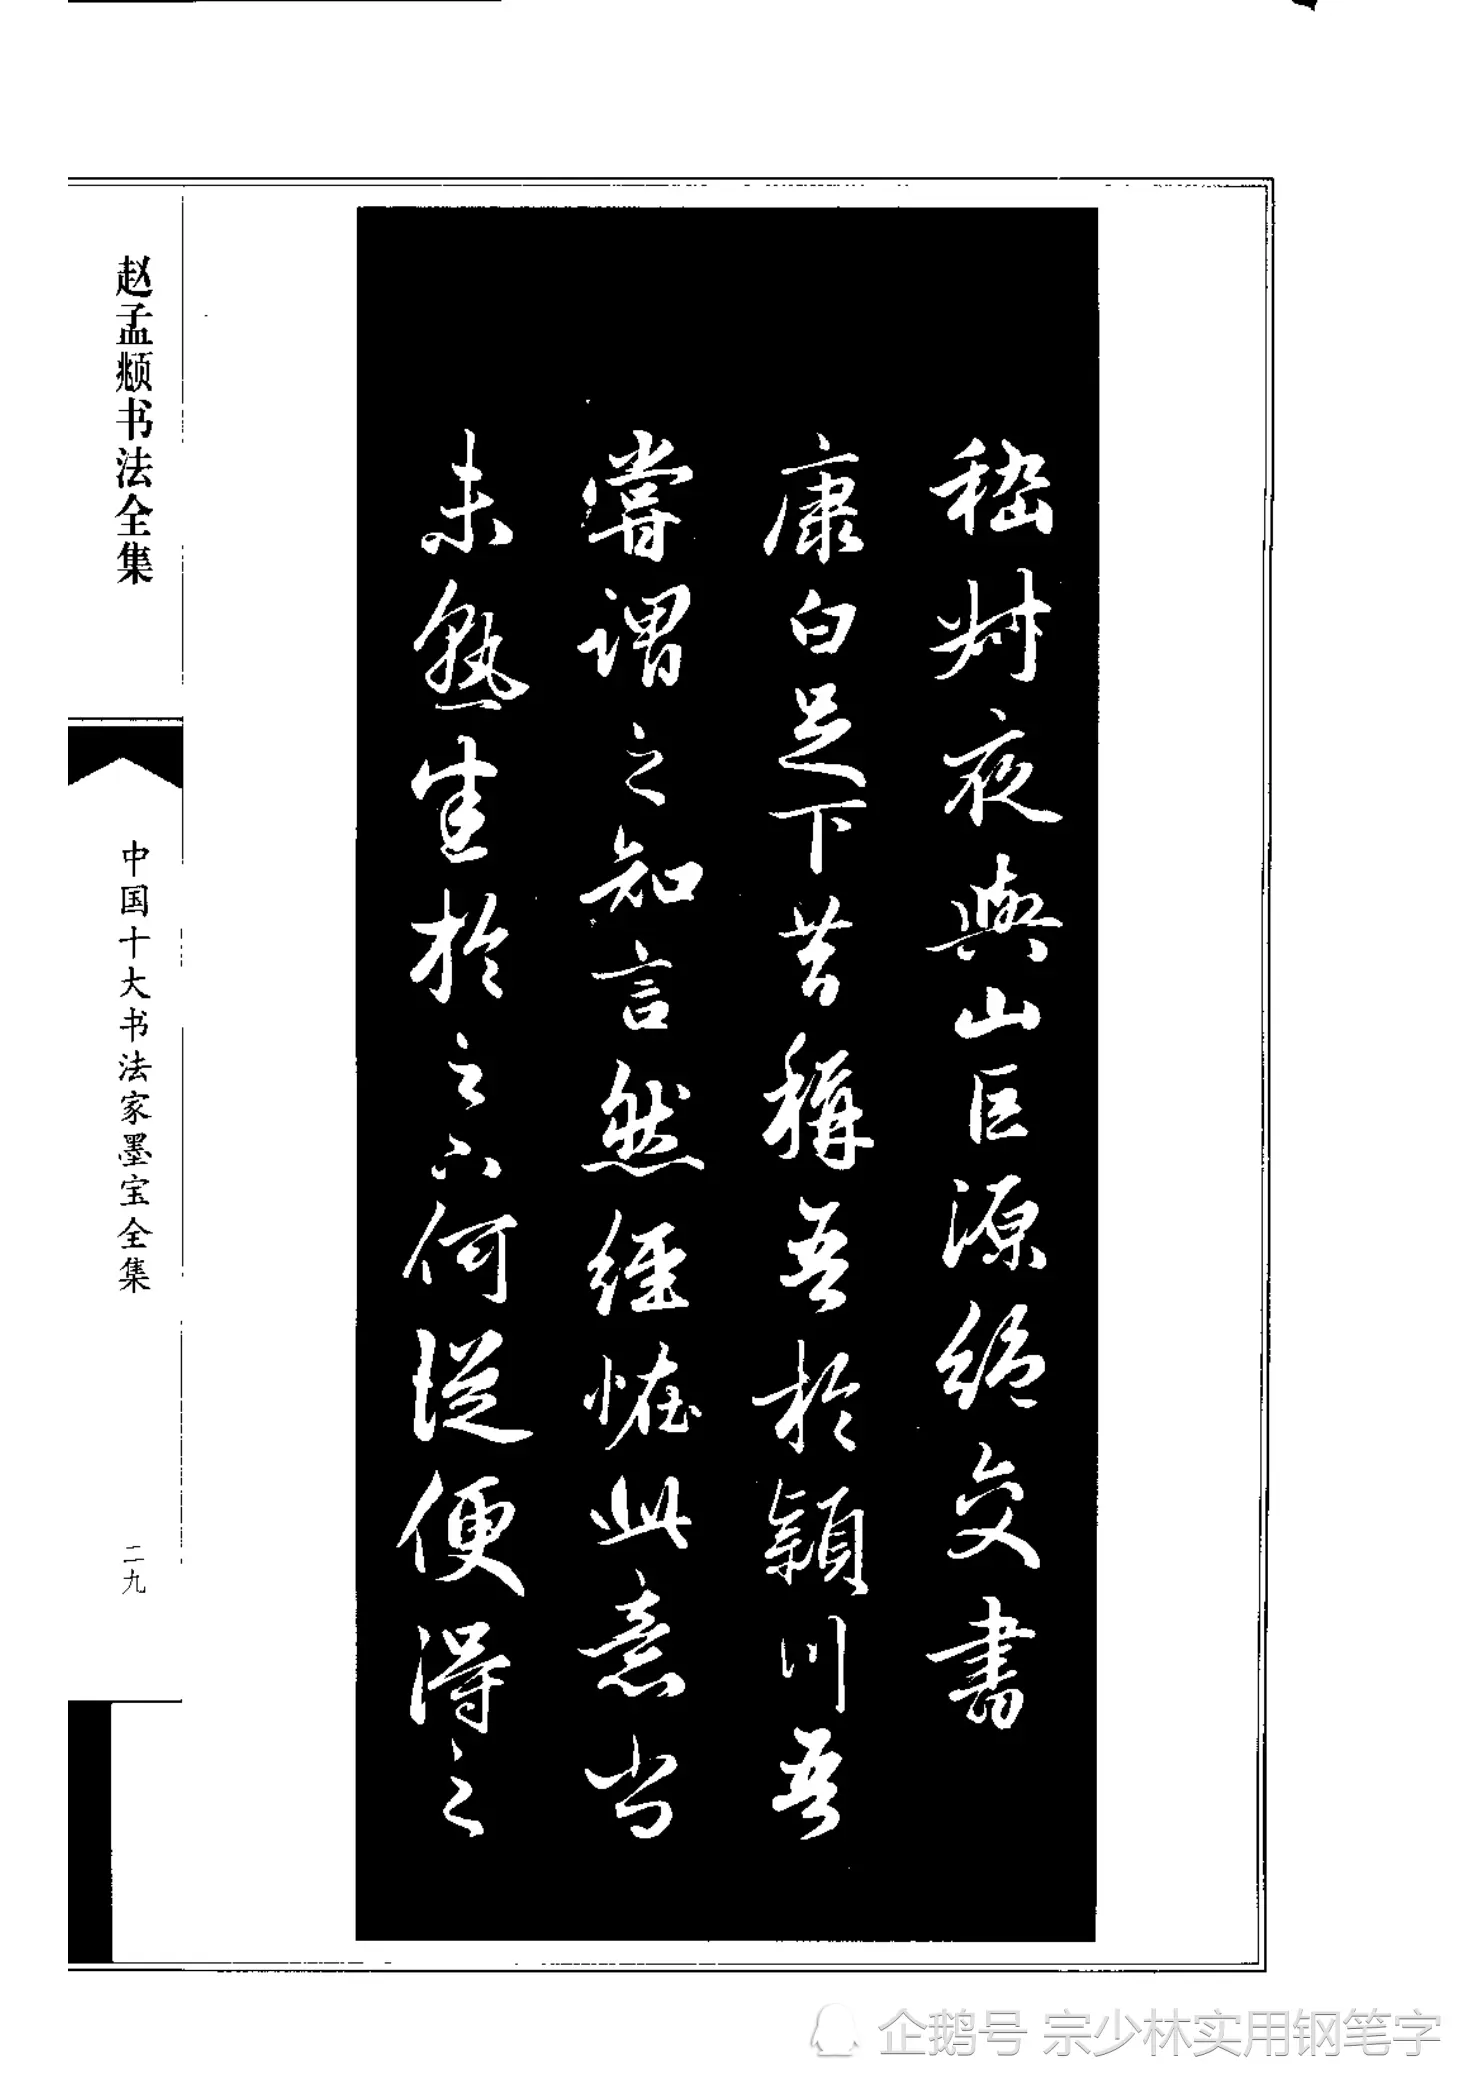 嵇叔夜與山巨源絕交書
康白足下昔稱吾於潁川吾
嘗謂之知言然經怪此意尚
未熟生於之六何從便得之
赵孟頫书法全集
中国十大书法家墨宝全集
二九
企鹅号 宗少林实用钢笔字